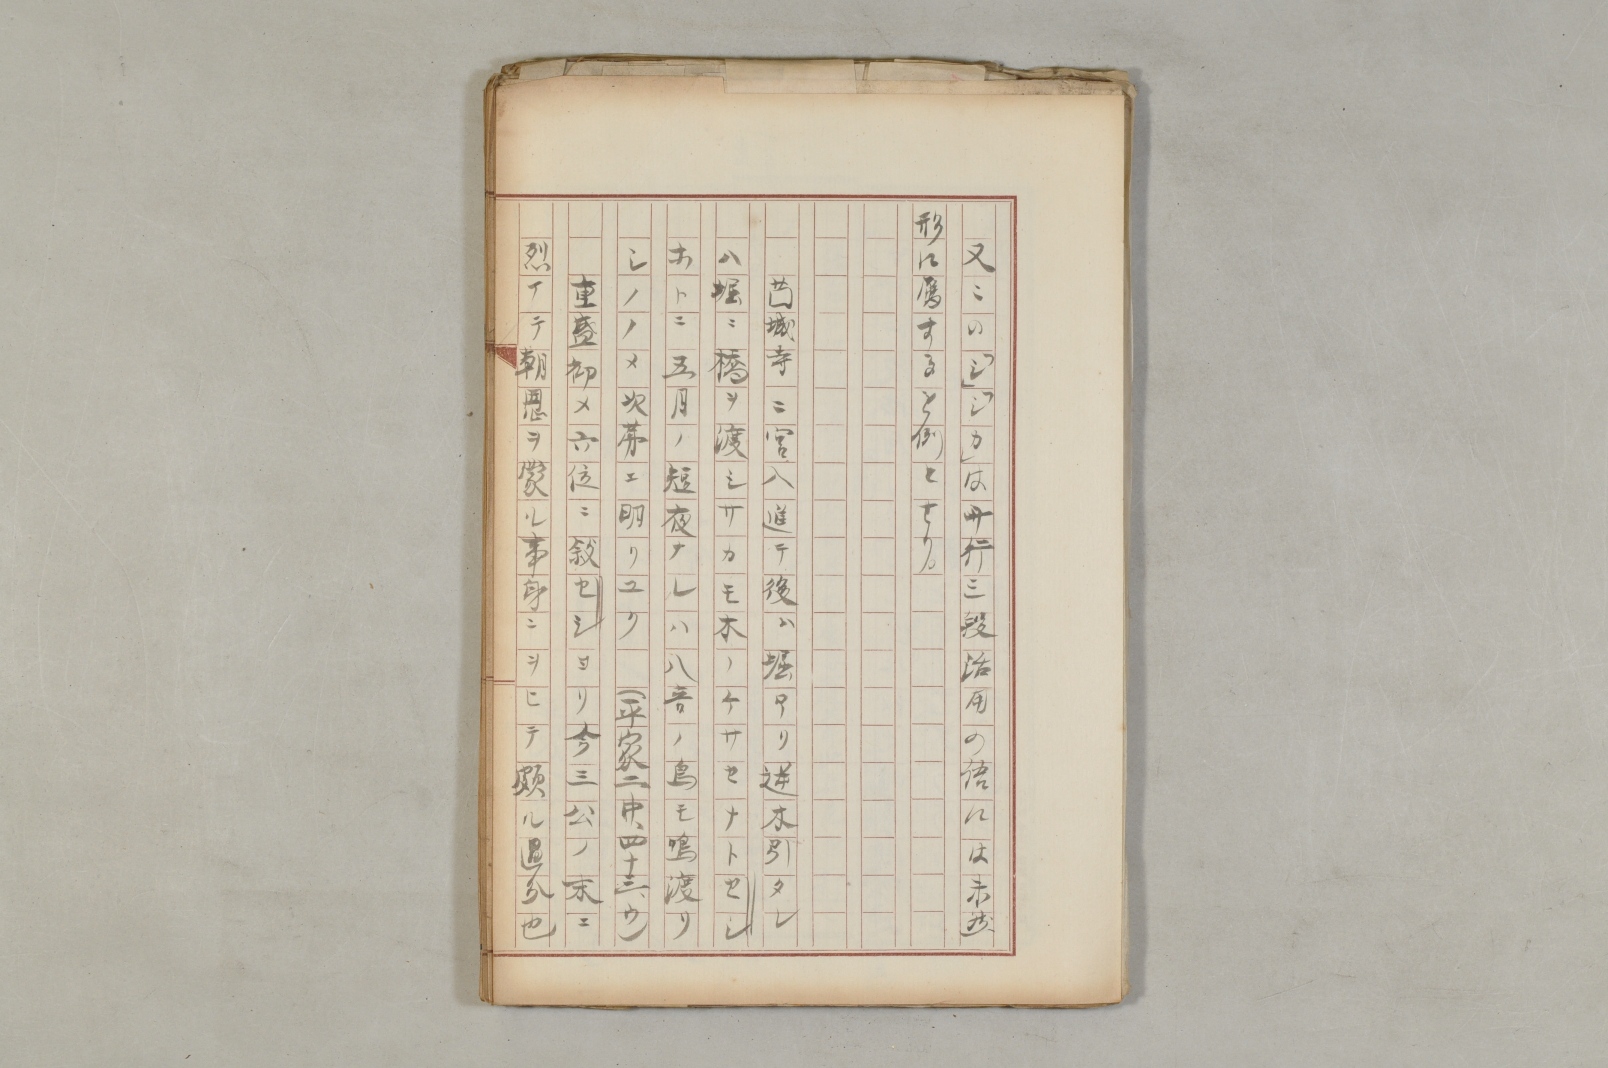 又この「シ」「シカ」はサ行三段活用の語には未然
形に属するを例とせり。
茴城寺ニ宮入進テ後ハ堀ホリ逆木引タレ
ハ堀ニ橋ヲ渡シサカモ木ノケサセナトセシ
ホトニ五月ノ短夜ナレハ八音ノ鳥モ鳴渡リ
シノノメ次第ニ明リユク　（平家二中、四十三、ウ）
重盛卿メ六位ニ叙セシヨリ今三公ノ末ニ
烈イテ朝恩ヲ蒙ル事身ニヲヒテ頗ル過分也